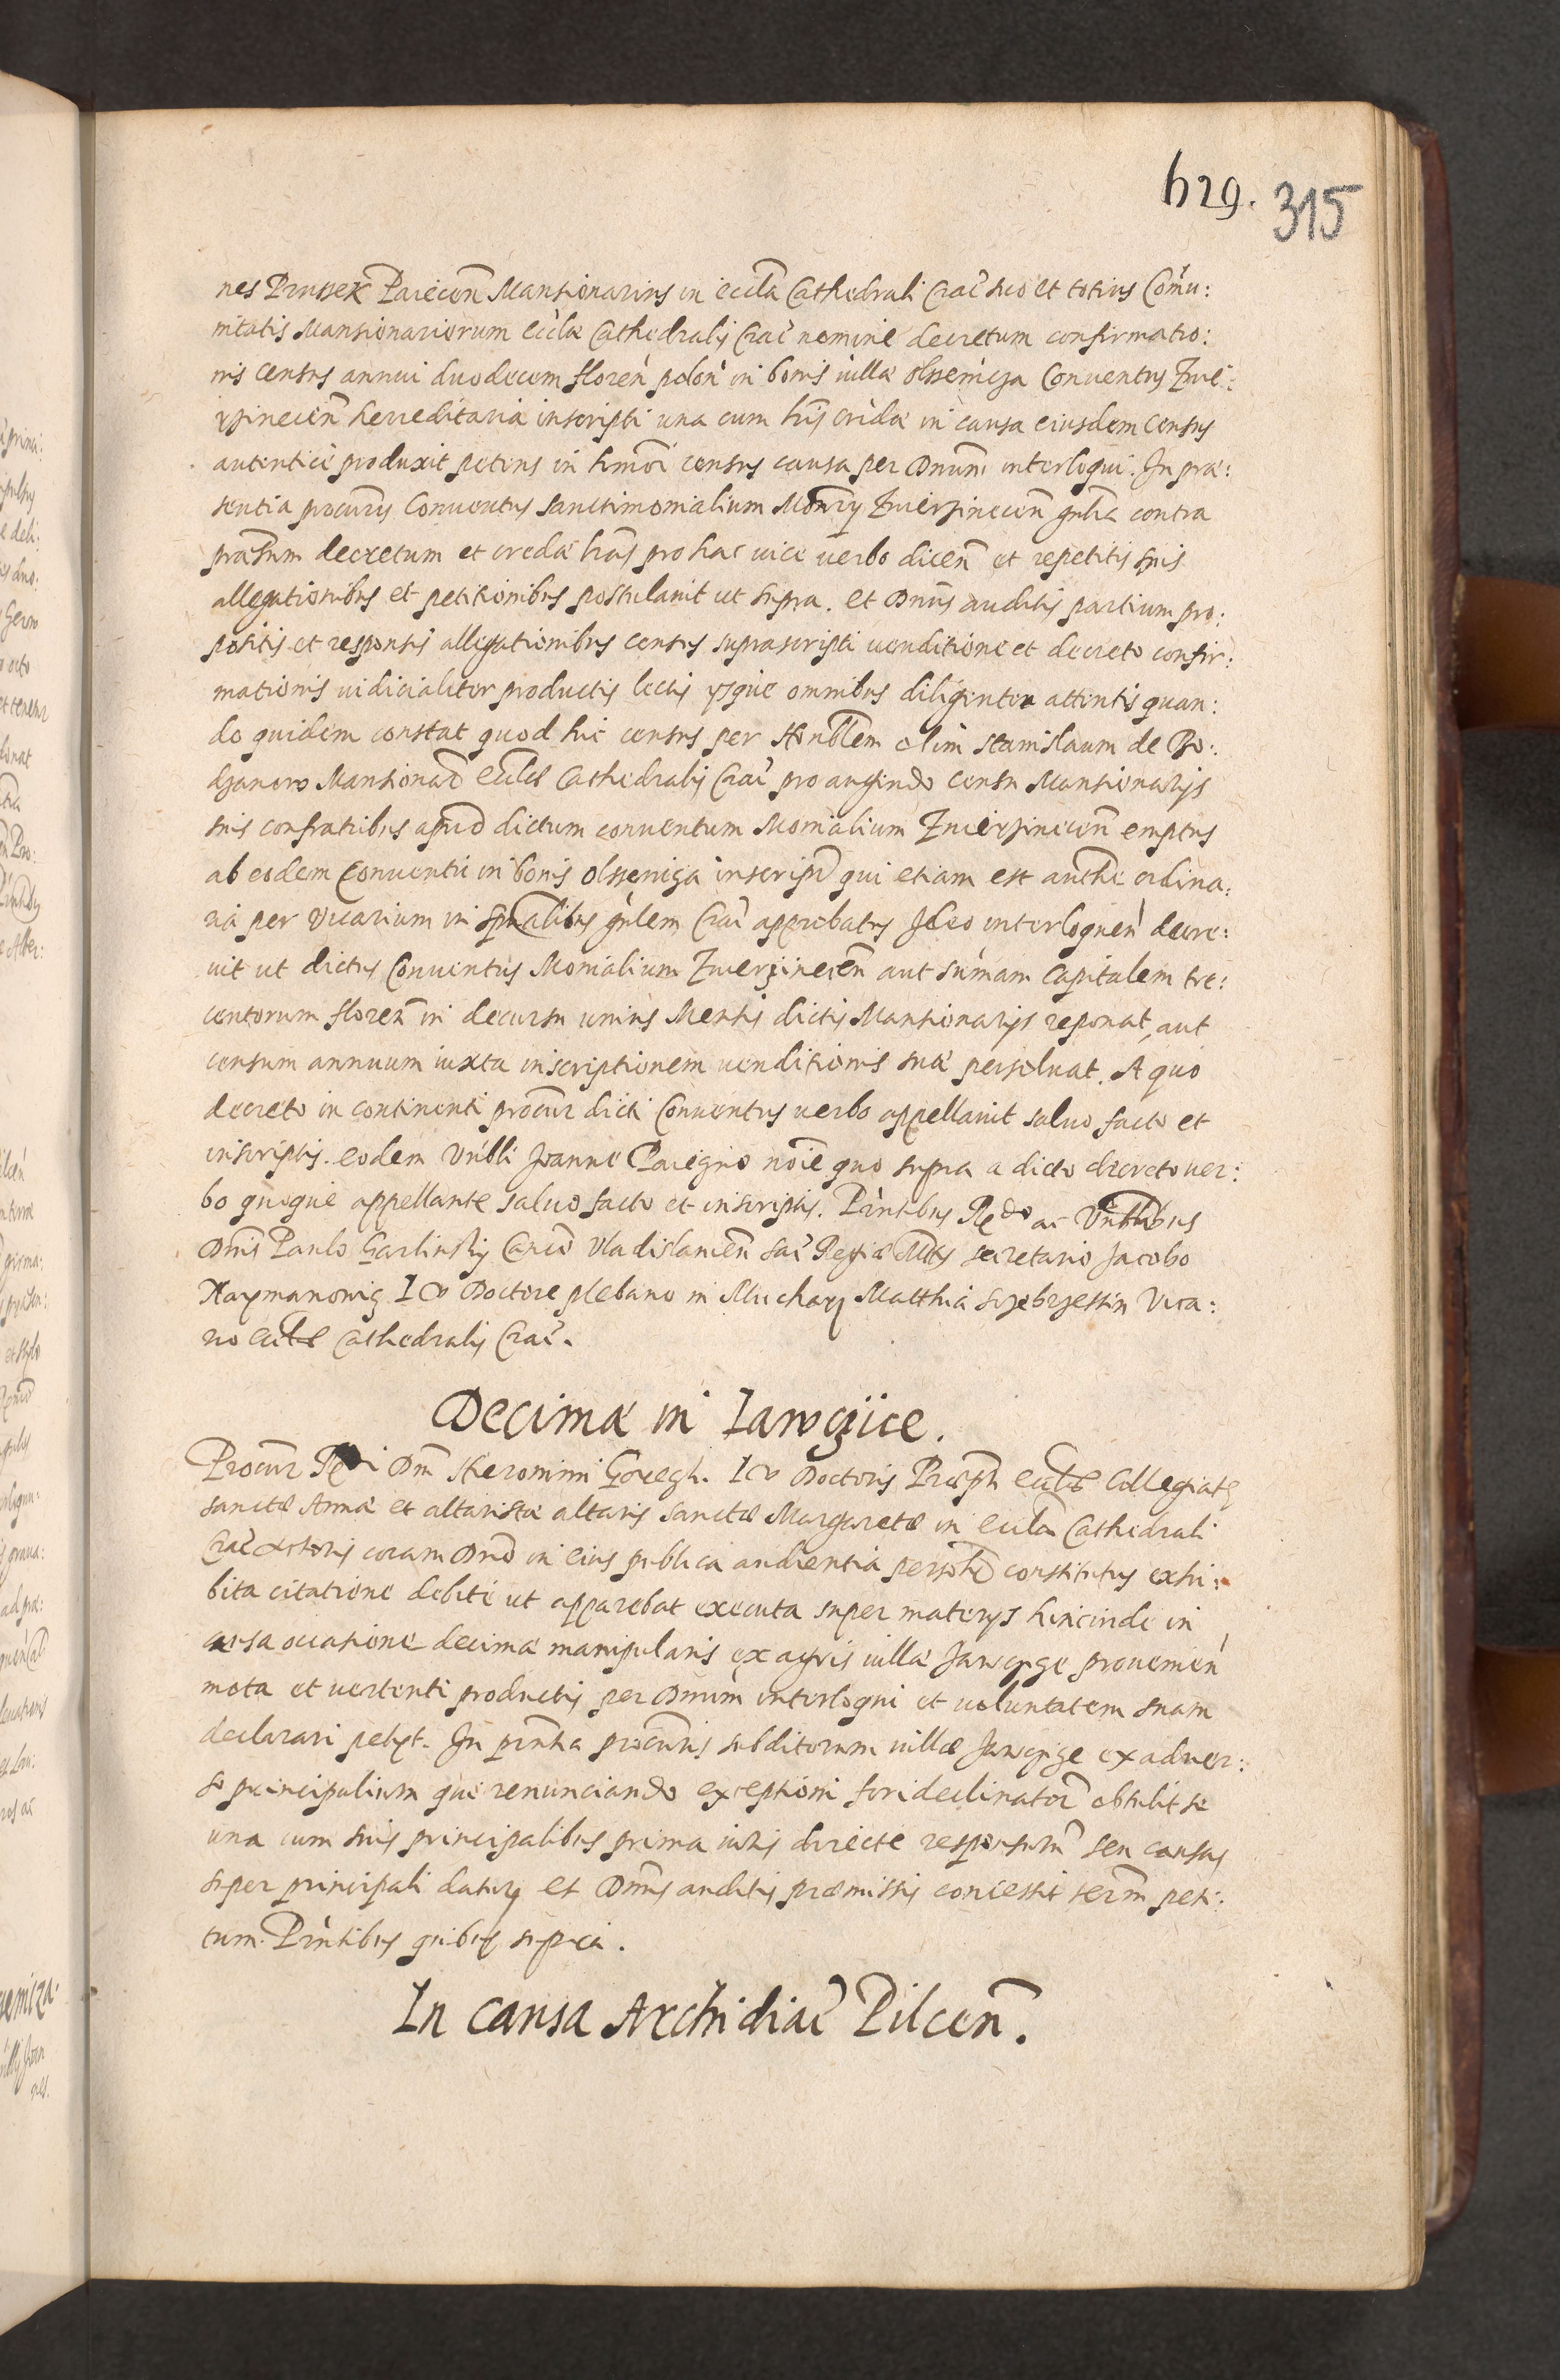 629. 315
nes Prussek Paiecen̄ Mansionarius in eccl̄a Cathedrali Crac̄ suo et totius Com̄u:
nitatis Mansionariorum eccl̄æ Cathedralis Crac̄ nomine decretum confirmatio:
nis census annui duodecem floreǹ poloǹ in bonis uillæ Olssenicza Conuentus Zwie:
rzinecen̄ hereditaria inscripti una cum lr̄is cridæ in causa eiusdem census
autentice produxit petens in hm̄oi census causa per Dnūm interloqui. In præ:
sentia procuris Conuentus sanctimonialium Mon̄rij Zwierzinecen̄ gnl̄is contra
præsum decretum et credæ lr̄as pro hac uice uerbo dicen̄ et repetitis suis
allegationibus et petitionibus postulauit ut supra. Et Dnūs auditis partium pro:
positis et responsis allegationibus census suprascripti uenditione et decreto confir:
mationis iudicialiter productis lectis ysque omnibus diligenter attentis quan:
do quidem constat quod hic census per Honbl̄em olim Stanislaum de Bo:
dzanow Mansionar̄ eccl̄æ Cathedralis Crac̄ pro augendo censu Mansionarijs
suis confratribus apud dictum conuentum Monialium Zwierzinecen̄ emptus
ab eodem Conuentu in bonis Olssenicza inscript̄ qui etiam est auth̄e ordina:
ria per Vicarium in sp̄ualibus gǹlem Crac̄ approbatus Ideo interloqueǹ decre:
uit ut dictus Conuentus Monialium Zwierzinecen̄ aut sum̄am capitalem tre:
centorum floren̄ in decursu unius Mensis dictis Mansionarijs reponat, aut
censum annuum iuxta inscriptionem uenditionis suæ persoluat. A quo
decreto in continenti procur̄ dicti Conuentus uerbo appellauit saluo facto et
inscriptis. eodem Vnībli Joanne Paiegno noīe quo supra a dicto decreto uer:
bo quoque appellante saluo facto et inscriptis. Pǹtibus Rēdo ac Vnībilibus
Dn̄is Paulo Garlinskij Canco Vladislauien̄ Sac̄ Regiæ Mt̄tis secretario Jacobo
Naymanowicz I V Doctore plebano in Mucharz Matthia Szczebrzessin Vica:
rio eccl̄æ Cathedralis Crac̄.
Decimæ in Jawczice.
Procur̄ Rēdi Dn̄i Hieronimi Goregh. I V Doctoris Præpti eccl̄æ Collegiatæ
sanctæ Annæ et altaristæ altaris sanctæ Margaretæ in eccl̄a Cathedrali
Crac̄ Actoris coram Dn̄o in eius publica audientia personl̄r constitutus exhi:
bita citatione debite ut apparebat executa super materijs hincinde in
causa occasione decimæ manipularis ex agris uillæ Jawczyce prouenieǹ
mota et uertenti productis per Dnūm interloqui et uoluntatem suam
declarari petijt. In pn̄tia procuris subditorum uillæ Jawczyce ex aduer:
so principalium qui renunciando exceptioni fori declinator̄ obtulit se
una cum suis principalibus prima iuris directe responsum̄ seu causas
super principali daturus et Dnūs auditis præmissis concessit term̄ peti:
tum. Pǹtibus quibus supra.
In causa Archidiac̄ Pilcen̄.